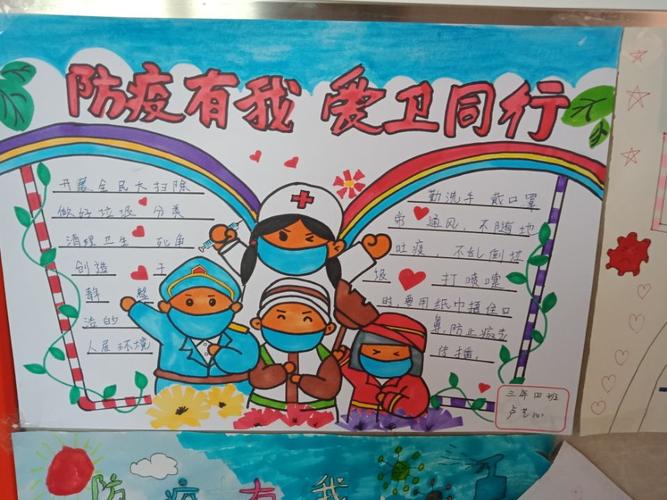 防疫有我 爱卫同行
开展全民大扫除
做好垃圾 分类
清理卫生 死角
创造 干
静 整
洁的
人居环境
勤洗手 戴口罩
常 通风，不随地
吐痰，不乱倒垃
圾 打喷嚏
时，要用纸巾捂住口
鼻，防止病毒
传播。
三年四班
防疫有我